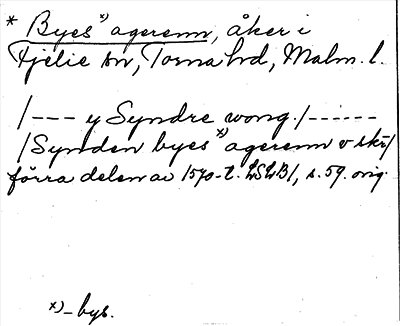 * Byes x) agerenn, åker i
Fjelie sn, Torna hd, Malm. l.
/--- y Syndre wong./------
/Synden byes x) agerenn v skr/
förra delen av 1570-t. LSLB/, s. 59. orig.
x) - bys.